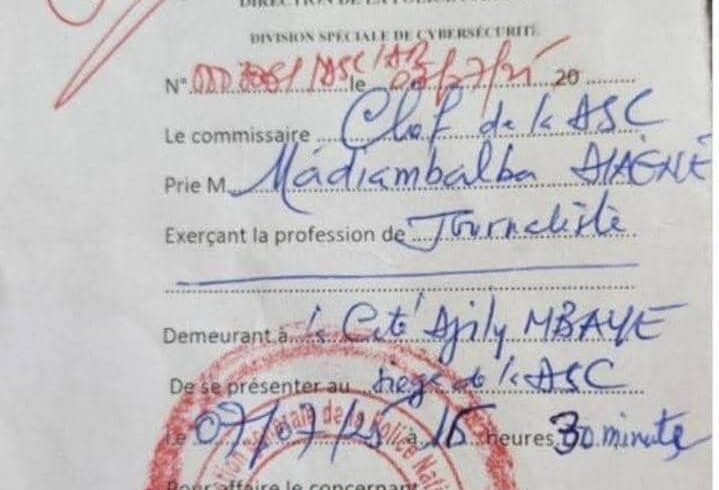 DIVISION SPÉCIALE DE CYBERSÉCURITÉ
N° /ASC/ le 20
Le commissaire Chef de la ASC
Prie M. Madiambalba DIAGNE
Exerçant la profession de Journaliste
Demeurant à la Cité Djily MBAYE
De se présenter au siège de la ASC
Le 07/07/25 à 15 heures 30 minute
Pour affaire le concernant